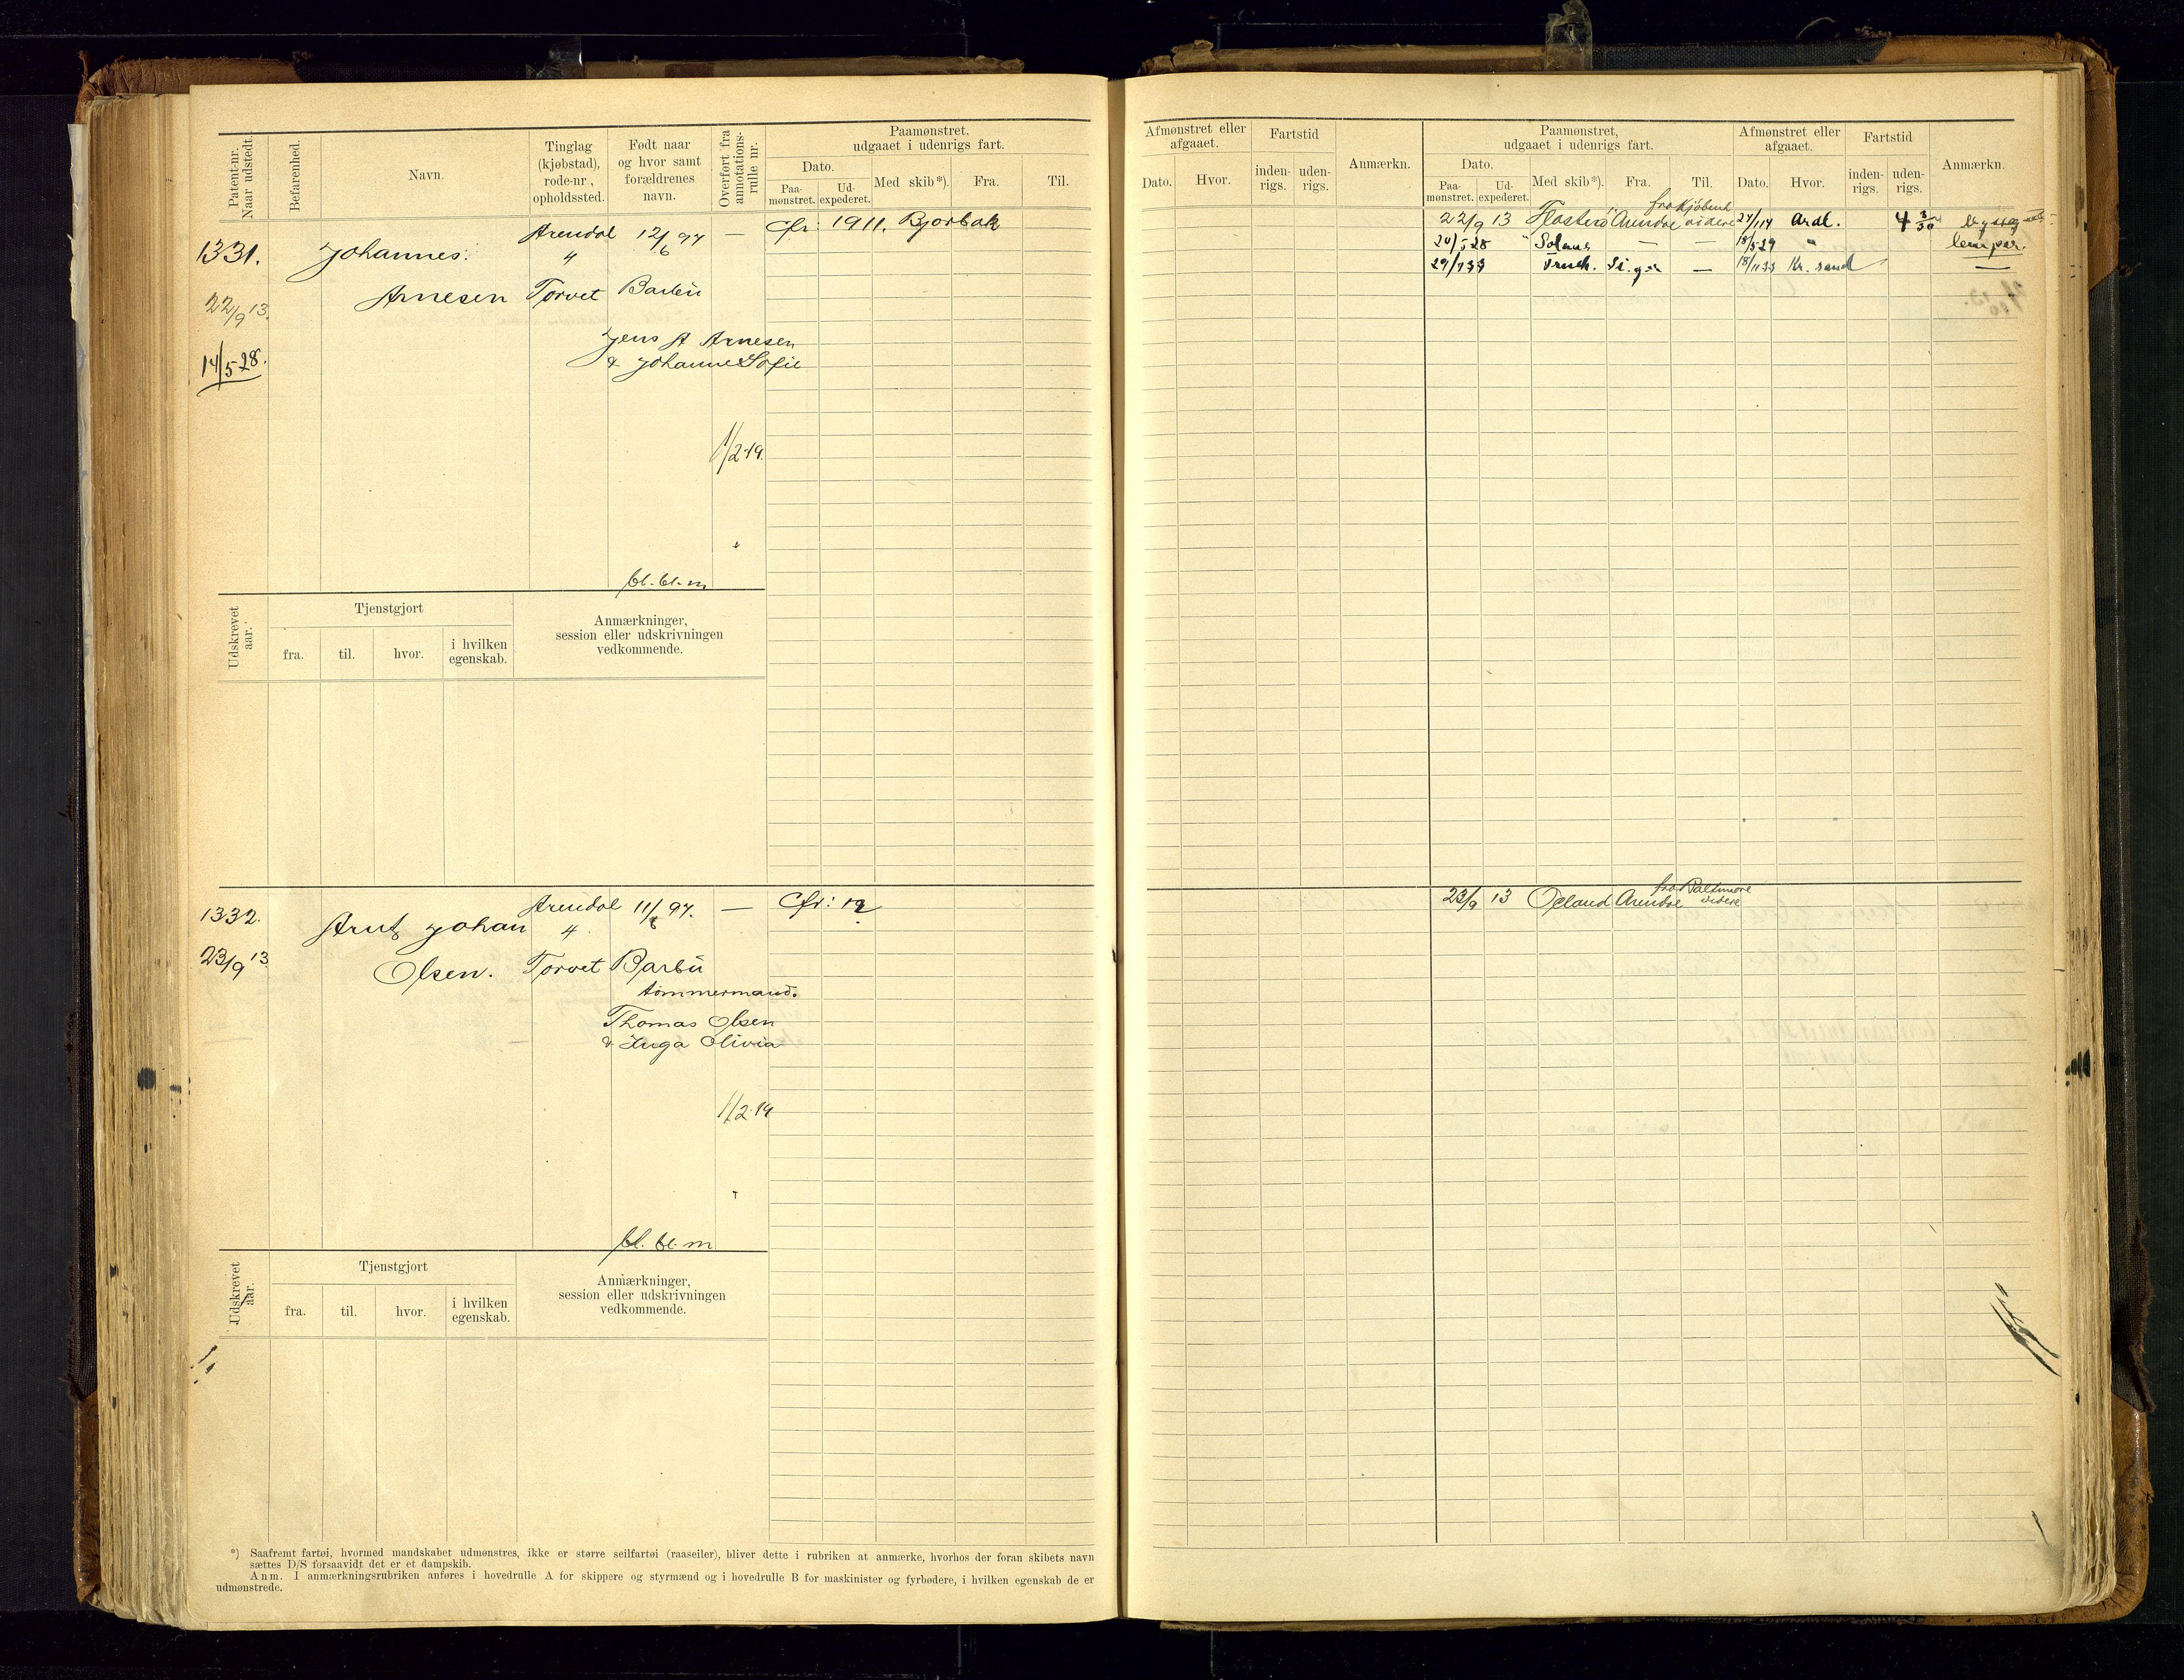 Patent-nr. Naar udstedt.
Befarenhed.
Navn.
Tinglag (kjøbstad), rode-nr., opholdssted.
Født naar og hvor samt forældrenes navn.
Overført fra annotations-rulle nr.
Paamønstret, udgaaet i udenrigs fart.
Dato.
Paa-mønstret.
Ud-expederet.
Med skib*).
Fra.
Til.
1331.
22/9 13.
14/5-28.
Johannes
Arnesen
Arendal
4
Torvet
12/6 97
Barbu
Jens A Arnesen
& Johanne Sofie
—
1/2-19.
bl. bl. m
Cfr: 1911. Bjorbak
Udskrevet aar.
Tjenstgjort
fra.
til.
hvor.
i hvilken egenskab.
Anmærkninger, session eller udskrivningen vedkommende.
1332.
23/9 13
Arnt Johan
Olsen.
Arendal
4
Torvet
11/ 97.
Barbu
tømmermand.
Thomas Olsen
& Inga Olivia
—
1/2-19
bl. bl. m
Cfr: 12
Udskrevet aar.
Tjenstgjort
fra.
til.
hvor.
i hvilken egenskab.
Anmærkninger, session eller udskrivningen vedkommende.
*) Saafremt fartøi, hvormed mandskabet udmønstres, ikke er større seilfartøi (raaseiler), bliver dette i rubriken at anmærke, hvorhos der foran skibets navn
sættes D/S forsaavidt det er et dampskib.
Anm. I anmærkningsrubriken anføres i hovedrulle A for skippere og styrmænd og i hovedrulle B for maskinister og fyrbødere, i hvilken egenskab de er
udmønstrede.
Afmønstret eller afgaaet.
Dato.
Hvor.
Fartstid
inden-rigs.
uden-rigs.
Anmærkn.
Paamønstret, udgaaet i udenrigs fart.
Dato.
Paa-mønstret.
Ud-expederet.
Med skib*).
Fra.
Til.
Afmønstret eller afgaaet.
Dato.
Hvor.
Fartstid
inden-rigs.
uden-rigs.
Anmærkn.
fra Kjøbenh
22/9 13 Flosterö Arendal videre 24/1 14 Ardl. 4 3/30
20/5-28 — — 18/5-29 "
lemper.
29/1 33 — 18/1 33 Kr. sand —
fra Baltimore
23/9 13 Öeland Arendal videre